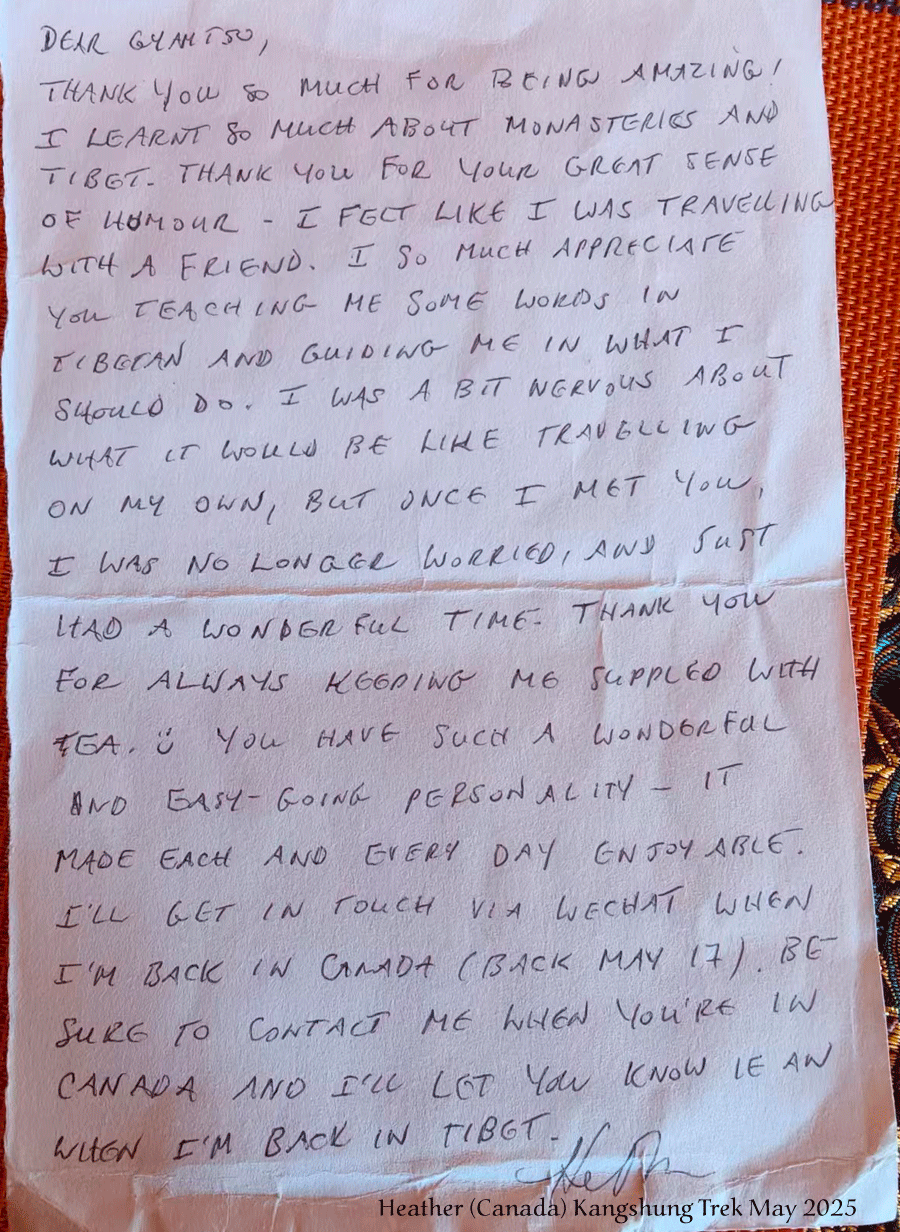 DEAR GYAHTSO,
THANK YOU SO MUCH FOR BEING AMAZING!
I LEARNT SO MUCH ABOUT MONASTERIES AND
TIBET. THANK YOU FOR YOUR GREAT SENSE
OF HUMOUR - I FELT LIKE I WAS TRAVELLING
WITH A FRIEND. I SO MUCH APPRECIATE
YOU TEACHING ME SOME WORDS IN
TIBETAN AND GUIDING ME IN WHAT I
SHOULD DO. I WAS A BIT NERVOUS ABOUT
WHAT IT WOULD BE LIKE TRAVELLING
ON MY OWN, BUT ONCE I MET YOU,
I WAS NO LONGER WORRIED, AND JUST
HAD A WONDERFUL TIME. THANK YOU
FOR ALWAYS KEEPING ME SUPPLED WITH
TEA. ☺ YOU HAVE SUCH A WONDERFUL
AND EASY-GOING PERSONALITY - IT
MADE EACH AND EVERY DAY ENJOYABLE.
I'LL GET IN TOUCH VIA WECHAT WHEN
I'M BACK IN CANADA (BACK MAY 17). BE
SURE TO CONTACT ME WHEN YOU'RE IN
CANADA AND I'LL LET YOU KNOW IF AN
WHEN I'M BACK IN TIBET.
Heather (Canada) Kangshung Trek May 2025